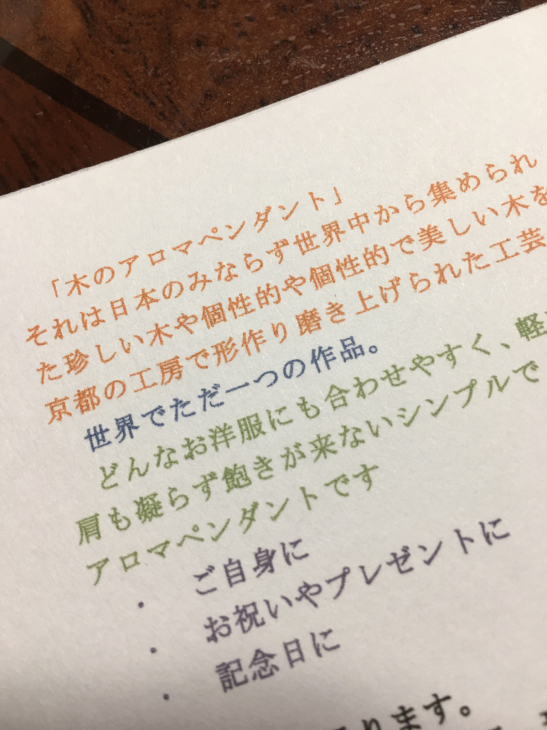 「木のアロマペンダント」
それは日本のみならず世界中から集められ
た珍しい木や個性的や個性的で美しい木を
京都の工房で形作り磨き上げられた工芸
世界でただ一つの作品。
どんなお洋服にも合わせやすく、軽
肩も凝らず飽きが来ないシンプルで
アロマペンダントです
・ ご自身に
・ お祝いやプレゼントに
・ 記念日に
ります。